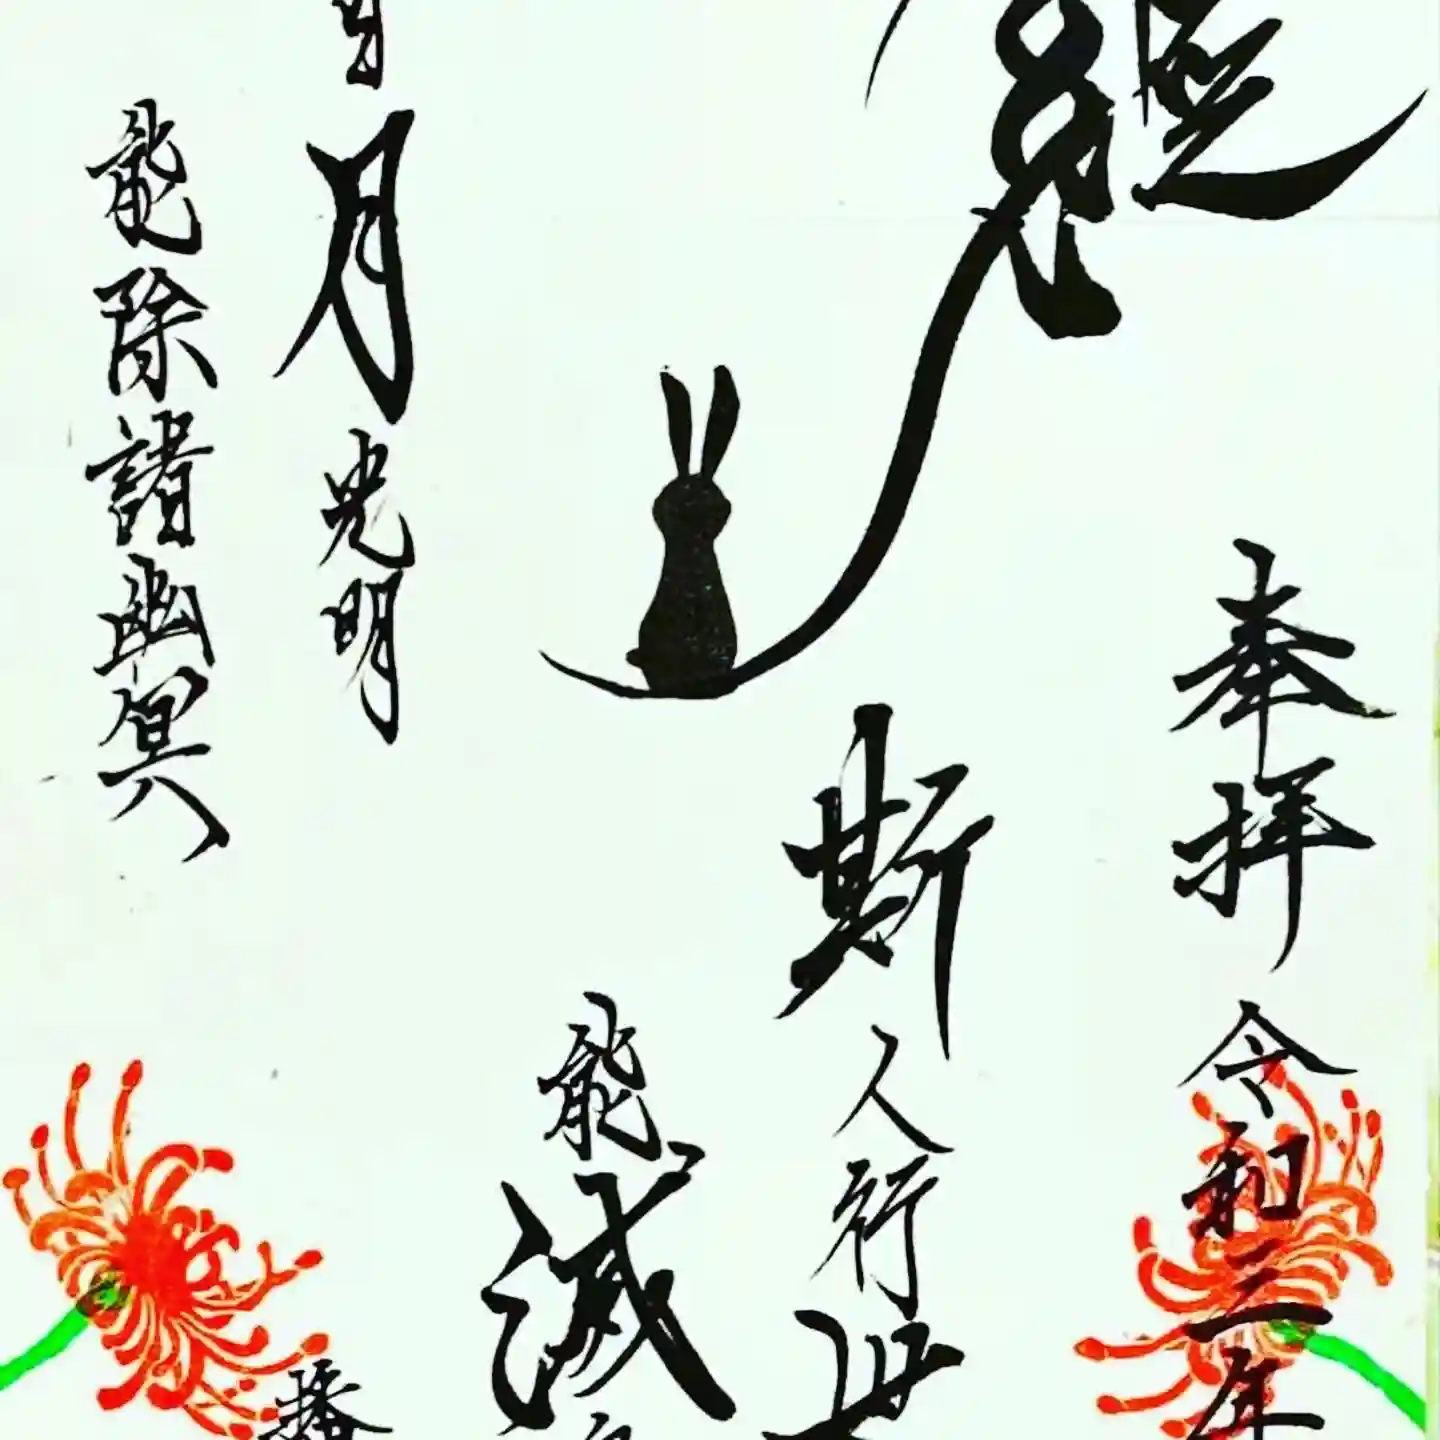 奉拝 令和三年
斯人行世
能滅
日月光明
播
能除諸幽冥